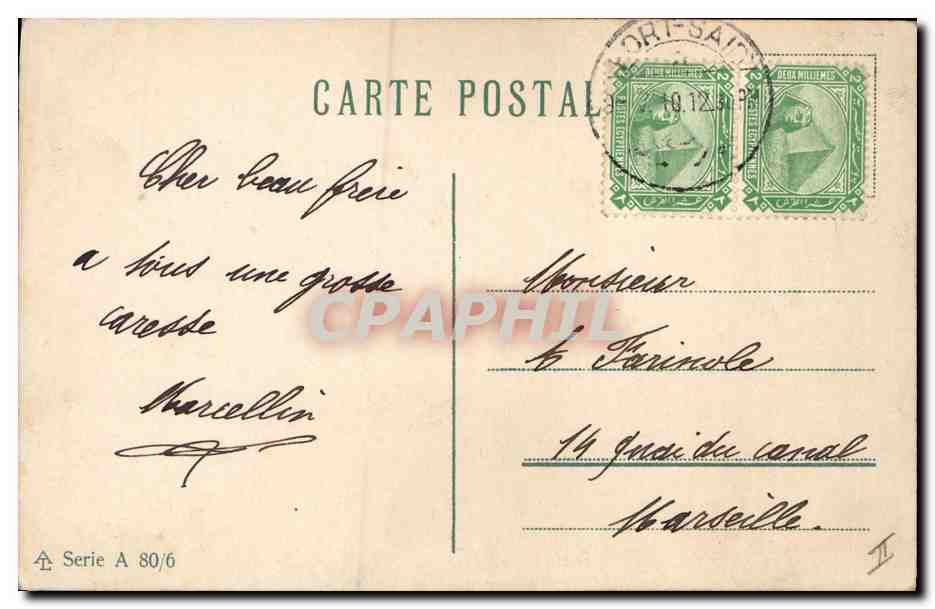 CARTE POSTALE
PORT-SAID
10.12
DEUX MILLIEMES
POSTES EGYPTIENNES
DEUX MILLIEMES
POSTES EGYPTIENNES
Cher beau frère
a tous une grosse
caresse
Marcellin
CPAPHIL
Monsieur
Farinole
14 Quai du canal
Marseille.
Serie A 80/6
II